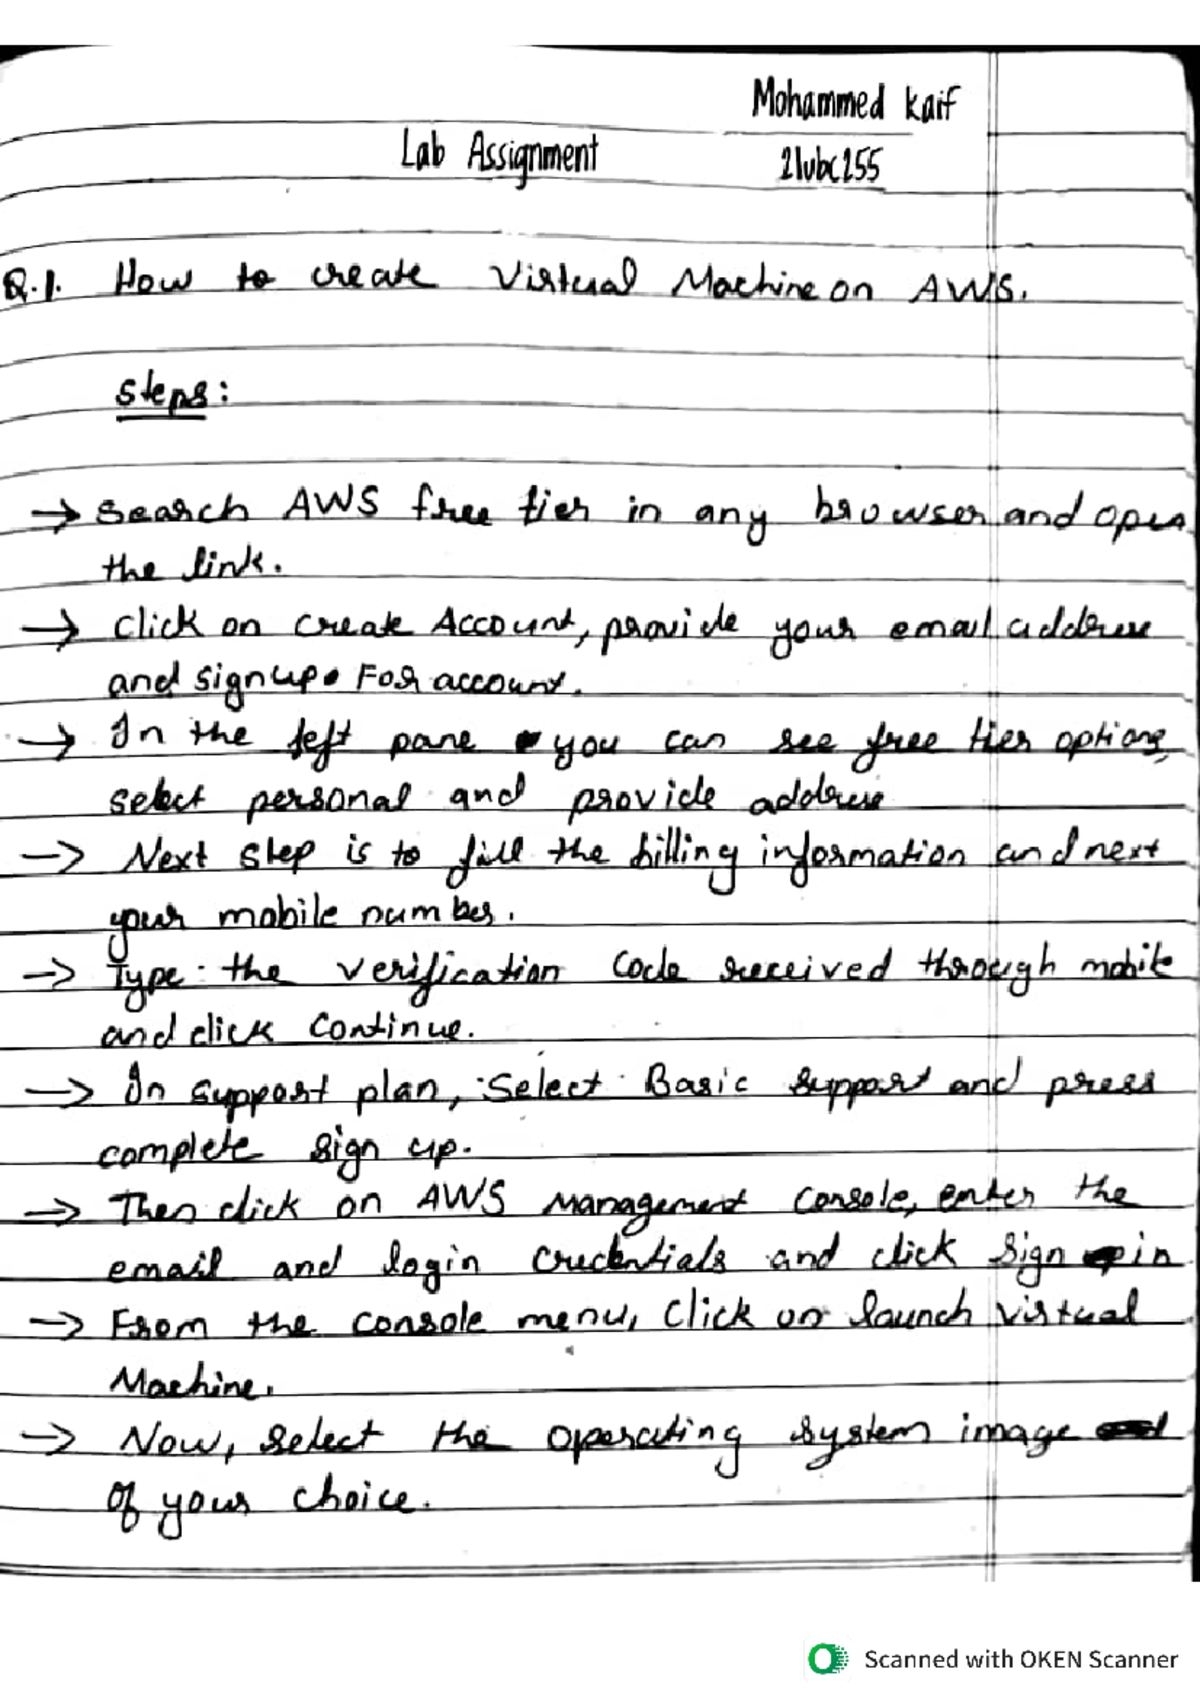 Mohammed Kaif
Lab Assignment 21ubc255
Q.1. How to create Virtual Machine on AWS.
Steps:
→ Search AWS free tier in any browser and open
the link.
→ Click on Create Account, provide your email address
and signup. For account.
→ In the left pane you can see free tier options,
select personal and provide address
→ Next step is to fill the billing information and next
your mobile number.
→ Type the verification code received through mobile
and click Continue.
→ In support plan, Select Basic support and press
complete sign up.
→ Then click on AWS Management Console, enter the
email and login credentials and click Sign in
→ From the console menu, Click on launch virtual
Machine.
→ Now, select the operating system image
of your choice.
Scanned with OKEN Scanner